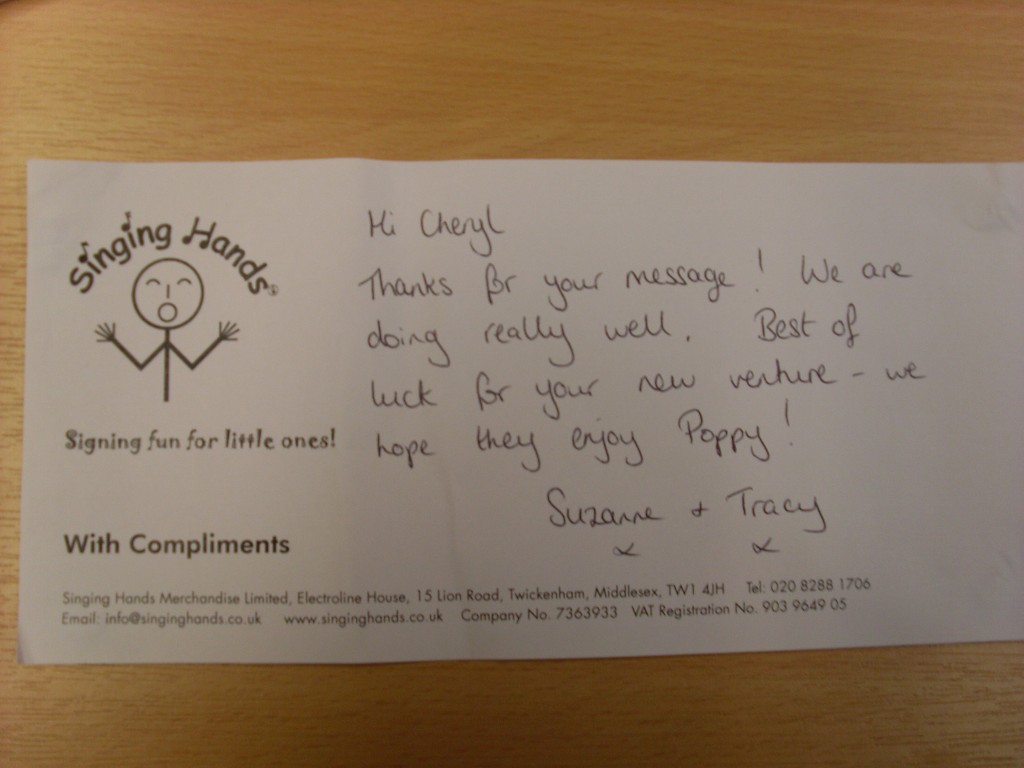 Singing Hands
Signing fun for little ones!
With Compliments
Hi Cheryl
Thanks for your message! We are
doing really well. Best of
luck for your new venture - we
hope they enjoy Poppy!
Suzanne + Tracy
x x
Singing Hands Merchandise Limited, Electroline House, 15 Lion Road, Twickenham, Middlesex, TW1 4JH Tel: 020 8288 1706
Email: info@singinghands.co.uk www.singinghands.co.uk Company No. 7363933 VAT Registration No. 903 9649 05